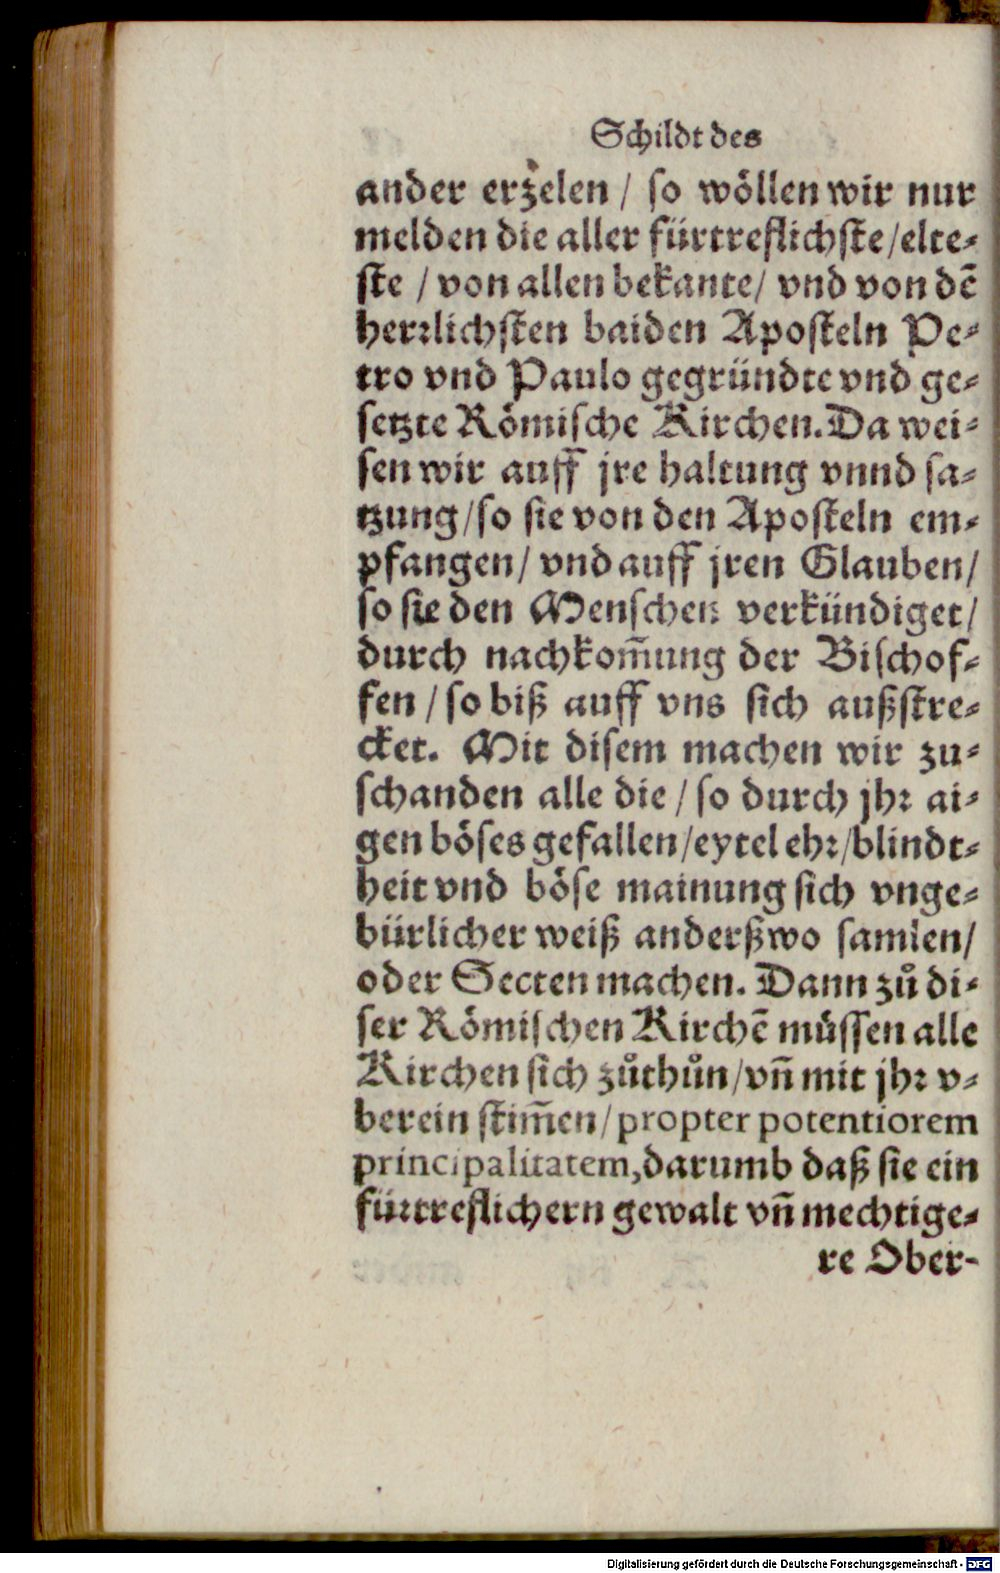 Schildt des
ander erzelen / so wöllen wir nur
melden die aller fürtreflichste/elte-
ste / von allen bekante/ vnd von dē
herrlichsten baiden Aposteln Pe-
tro vnd Paulo gegründte vnd ge-
setzte Römische Kirchen. Da wei-
sen wir auff jre haltung vnnd sa-
tzung/so sie von den Aposteln em-
pfangen/ vnd auff jren Glauben/
so sie den Menschen verkündiget/
durch nachkom̄ung der Bischof-
fen / so biß auff vns sich außstre-
cket. Mit disem machen wir zu-
schanden alle die / so durch jhr ai-
gen böses gefallen/eytel ehr/blindt-
heit vnd böse mainung sich vnge-
bürlicher weiß anderßwo samlen/
oder Secten machen. Dann zů di-
ser Römischen Kirchē müssen alle
Kirchen sich zůthůn/vn̄ mit jhr v-
berein stim̄en/propter potentiorem
principalitatem,darumb daß sie ein
fürtreflichern gewalt vn̄ mechtige-
re Ober-
Digitalisierung gefördert durch die Deutsche Forschungsgemeinschaft - DFG